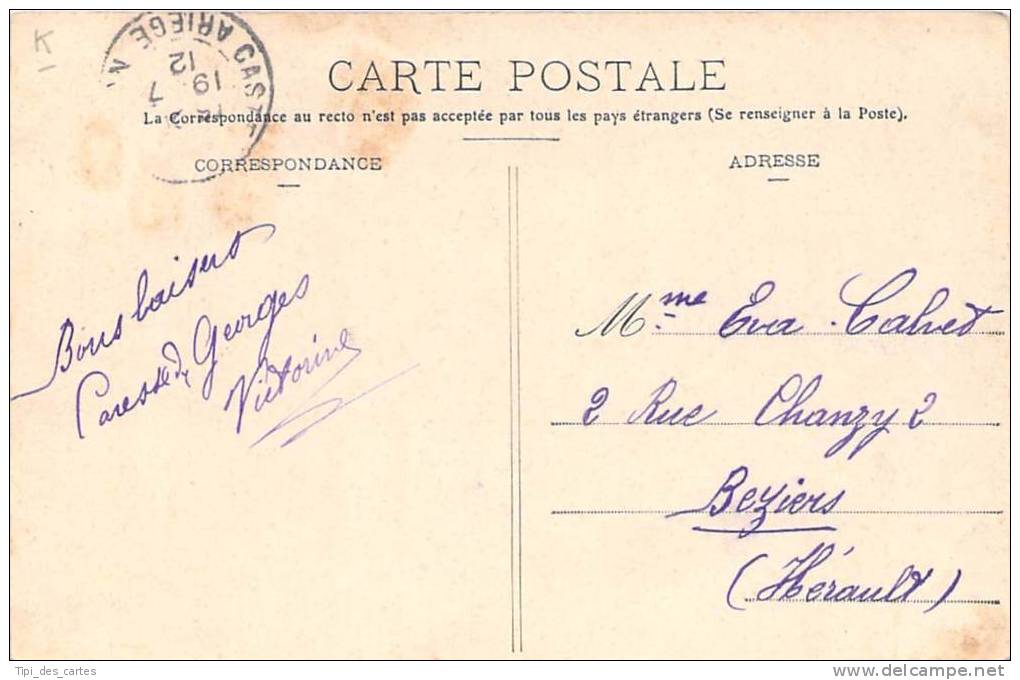 K
ARIEGE
12
19
7
CARTE POSTALE
La Correspondance au recto n'est pas acceptée par tous les pays étrangers (Se renseigner à la Poste).
CORRESPONDANCE
Bons baisers
Georges
Victorine
ADRESSE
Mme Eva Calvet
2 Rue Chanzy 2
Beziers
(Hérault)
Tipi_des_cartes
www.delcampe.net